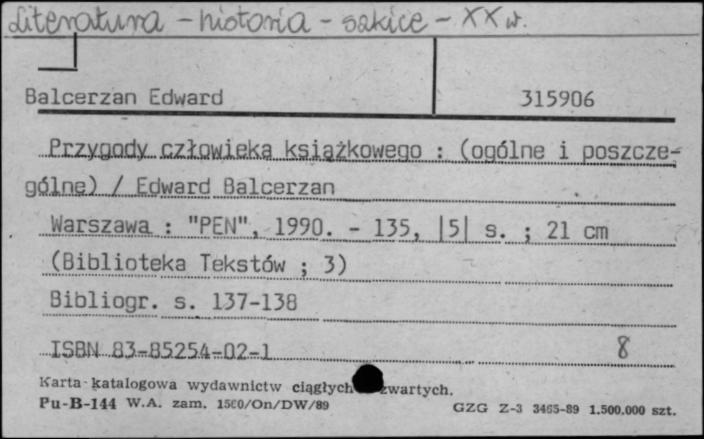 Literatura - historia - szkice - XX w.
Balcerzan Edward
315906
Przygody człowieka książkowego : (ogólne i poszcze-
gólne) / Edward Balcerzan
Warszawa : "PEN", 1990. - 135, |5| s. ; 21 cm
(Biblioteka Tekstów ; 3)
Bibliogr. s. 137-138
ISBN 83-85254-02-1
8
Karta katalogowa wydawnictw ciągłych zwartych.
Pu-B-144 W.A. zam. 1580/On/DW/89
GZG Z-3 3465-89 1.500.000 szt.